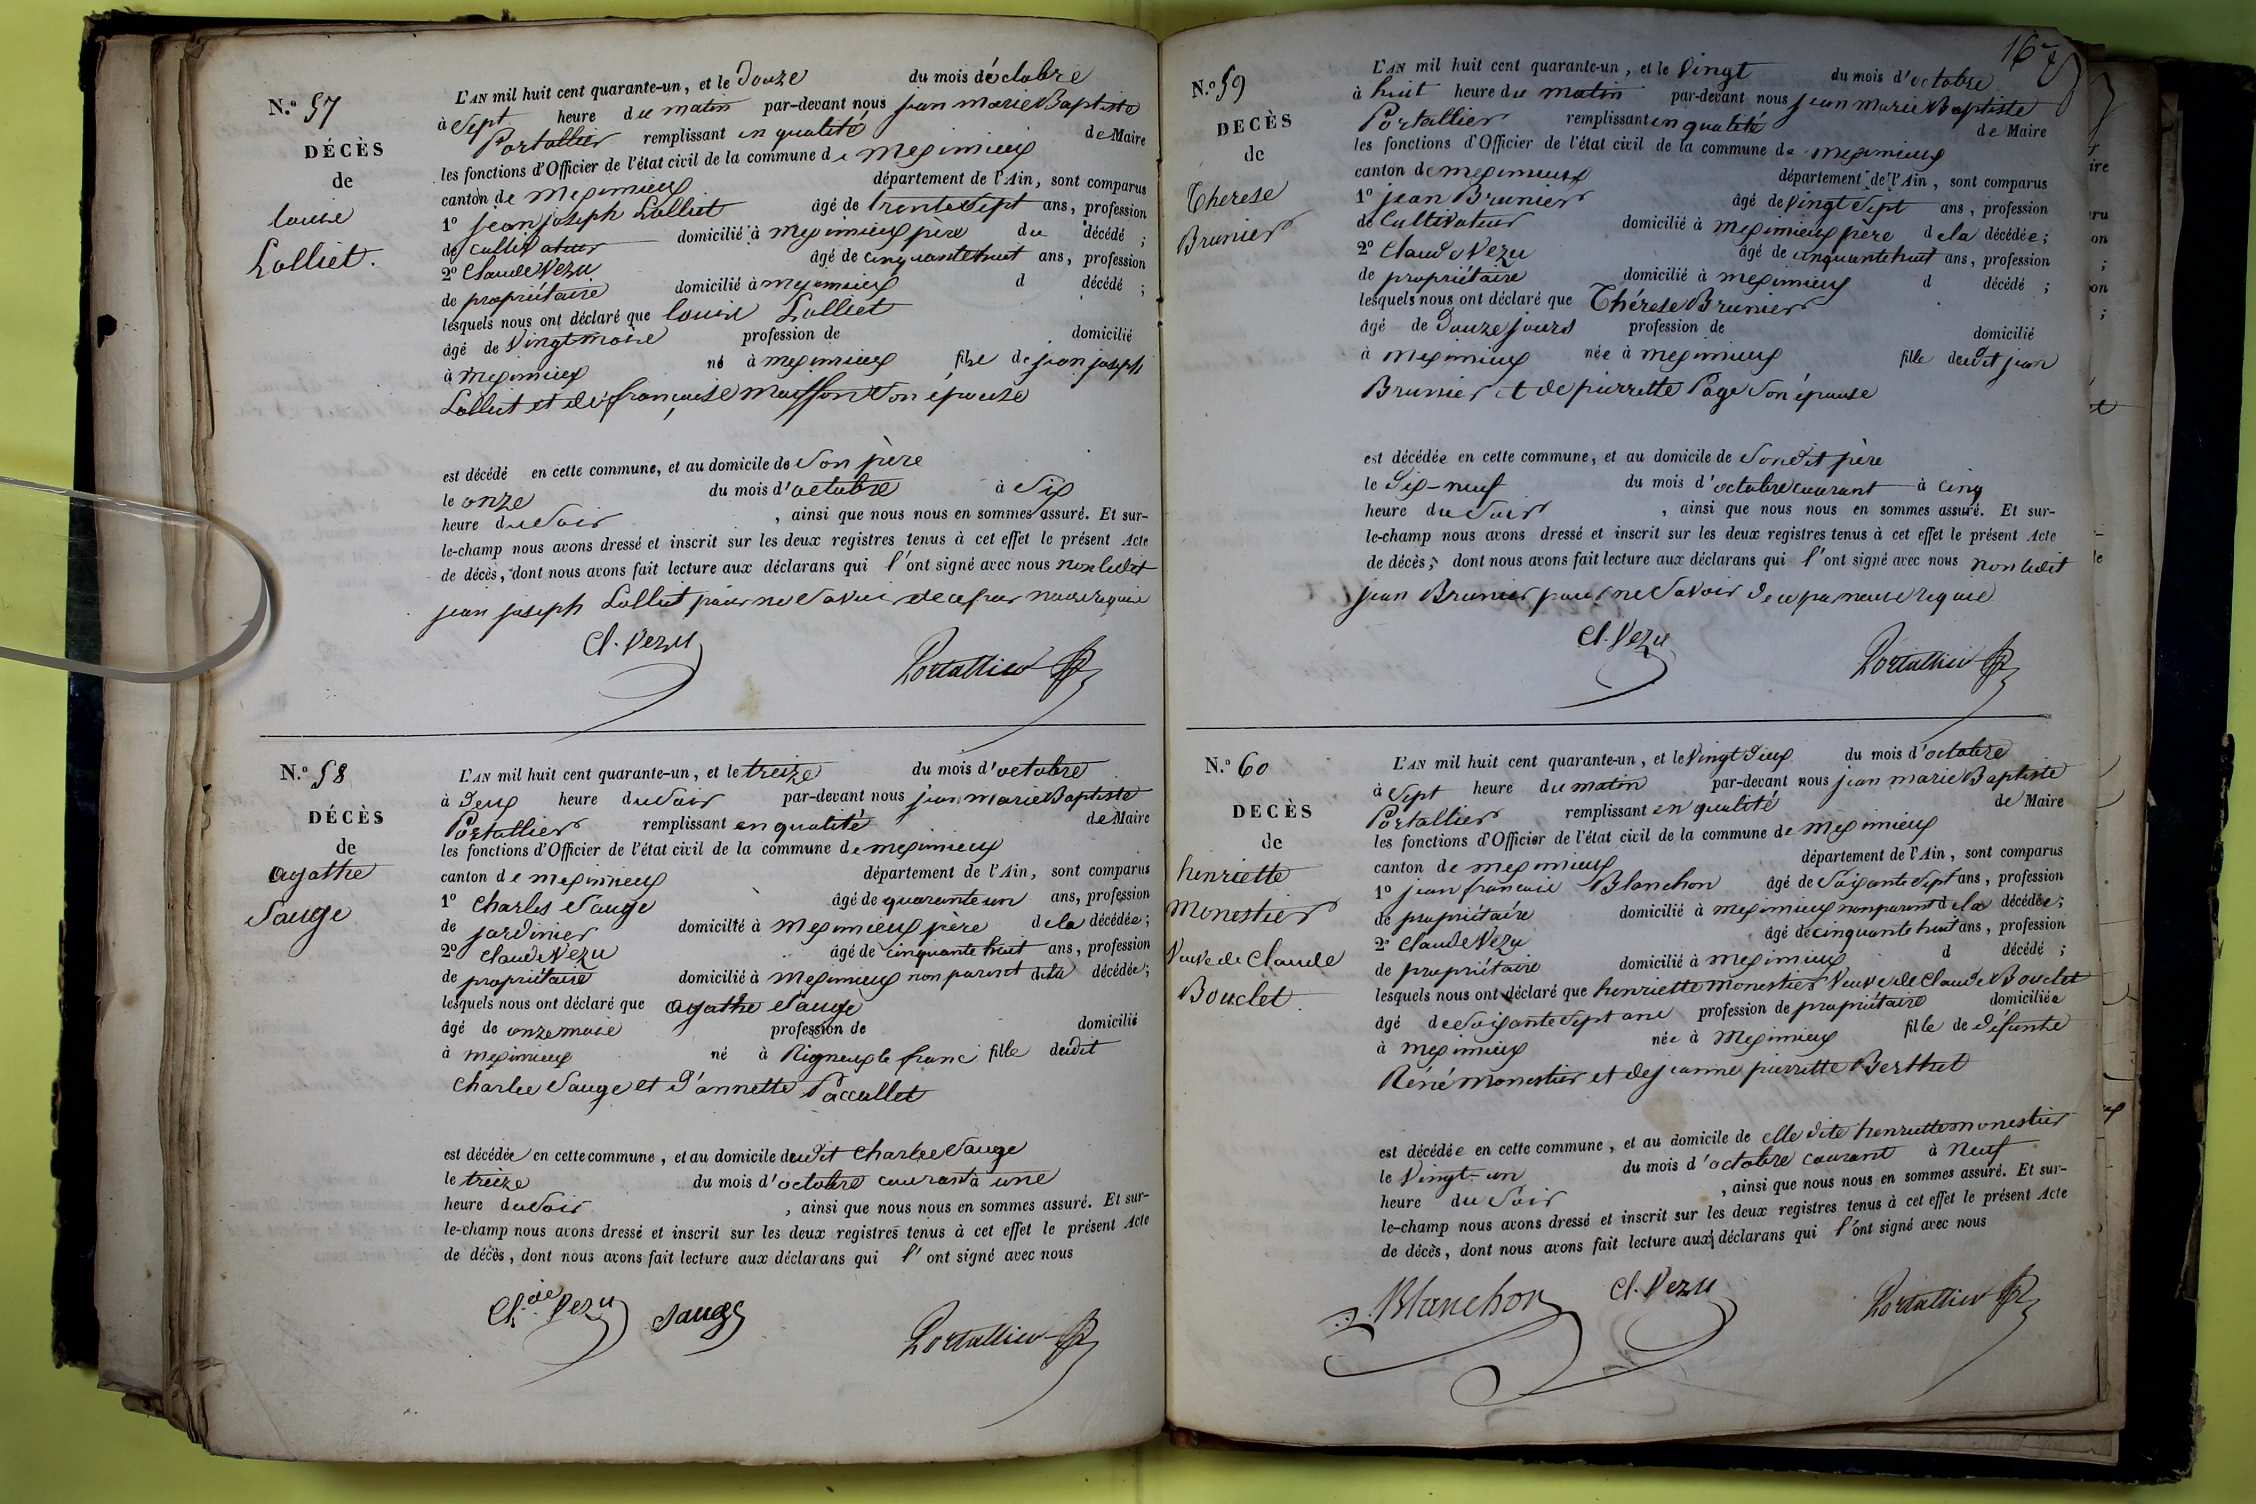 N.º 57
DÉCÈS
de
louise
Lolliet.
L'AN mil huit cent quarante-un, et le Douze du mois d'octobre
à Sept heure du matin par-devant nous jean marie Baptiste
Portallier remplissant en qualité de Maire
les fonctions d'Officier de l'état civil de la commune de meximieux
canton de meximieux département de l'Ain, sont comparus
1º jean joseph Lolliet âgé de trente Sept ans, profession
de cultivateur domicilié à meximieux père du décédé ;
2º Claude Vezu âgé de cinquante huit ans, profession
de propriétaire domicilié à meximieux d décédé ;
lesquels nous ont déclaré que louise Lolliet
âgé de Vingt mois profession de domicilié
à meximieux né à meximieux fille de jean joseph
Lolliet et de françoise Son épouse
est décédé en cette commune, et au domicile de Son père
le onze du mois d'octobre à Six
heure du Soir , ainsi que nous nous en sommes assuré. Et sur-
le-champ nous avons dressé et inscrit sur les deux registres tenus à cet effet le présent Acte
de décès, dont nous avons fait lecture aux déclarans qui l'ont signé avec nous non ledit
jean joseph Lolliet pour ne Savoir de ce par nous requis
Cl. Vezu
Portallier
N.º 58
DÉCÈS
de
agathe
Sauge
L'AN mil huit cent quarante-un, et le treize du mois d'octobre
à Deux heure du Soir par-devant nous jean marie Baptiste
Portallier remplissant en qualité de Maire
les fonctions d'Officier de l'état civil de la commune de meximieux
canton de meximieux département de l'Ain, sont comparus
1º Charles Sauge âgé de quarante un ans, profession
de jardinier domicilié à meximieux père de la décédée ;
2º Claude Vezu âgé de cinquante huit ans, profession
de propriétaire domicilié à meximieux non parent de la décédée ;
lesquels nous ont déclaré que agathe Sauge
âgé de onze mois profession de domicilié
à meximieux né à Rigneux le franc fille dudit
Charles Sauge et d'annette Paccallet
est décédée en cette commune, et au domicile dudit Charles Sauge
le treize du mois d'octobre courant à une
heure du Soir , ainsi que nous nous en sommes assuré. Et sur-
le-champ nous avons dressé et inscrit sur les deux registres tenus à cet effet le présent Acte
de décès, dont nous avons fait lecture aux déclarans qui l'ont signé avec nous
Cl.de Vezu Sauge
Portallier
167
N.º 59
DECÈS
de
Therese
Brunier
L'AN mil huit cent quarante-un, et le Vingt du mois d'octobre
à huit heure du matin par-devant nous jean marie Baptiste
Portallier remplissant en qualité de Maire
les fonctions d'Officier de l'état civil de la commune de meximieux
canton de meximieux département de l'Ain, sont comparus
1º jean Brunier âgé de Vingt Sept ans, profession
de Cultivateur domicilié à meximieux père de la décédée ;
2º Claude Vezu âgé de cinquante huit ans, profession
de propriétaire domicilié à meximieux d décédé ;
lesquels nous ont déclaré que Thérese Brunier
âgé de Douze jours profession de domicilié
à meximieux née à meximieux fille dudit jean
Brunier et de pierrette Page Son épouse
est décédée en cette commune, et au domicile de Sondit père
le Dix-neuf du mois d'octobre courant à cinq
heure du Soir , ainsi que nous nous en sommes assuré. Et sur-
le-champ nous avons dressé et inscrit sur les deux registres tenus à cet effet le présent Acte
de décès ; dont nous avons fait lecture aux déclarans qui l'ont signé avec nous non ledit
jean Brunier pour ne Savoir de ce par nous requis
Cl. Vezu
Portallier
N.º 60
DECÈS
de
henriette
Monestier
Veuve de Claude
Bouclet
L'AN mil huit cent quarante-un, et le Vingt Deux du mois d'octobre
à Sept heure du matin par-devant nous jean marie Baptiste
Portallier remplissant en qualité de Maire
les fonctions d'Officier de l'état civil de la commune de meximieux
canton de meximieux département de l'Ain, sont comparus
1º jean francois Blanchon âgé de Soixante Sept ans, profession
de propriétaire domicilié à meximieux non parent de la décédée ;
2º Claude Vezu âgé de cinquante huit ans, profession
de propriétaire domicilié à meximieux d décédé ;
lesquels nous ont déclaré que henriette monestier Veuve de Claude Bouclet
âgé de Soixante Sept ans profession de propriétaire domiciliée
à meximieux née à Meximieux fille de défunts
Réné monestier et de jeanne pierrette Berthet
est décédée en cette commune, et au domicile de elle dite henriette monestier
le Vingt-un du mois d'octobre courant à Neuf
heure du Soir , ainsi que nous nous en sommes assuré. Et sur-
le-champ nous avons dressé et inscrit sur les deux registres tenus à cet effet le présent Acte
de décès, dont nous avons fait lecture aux déclarans qui l'ont signé avec nous
Blanchon Cl. Vezu
Portallier